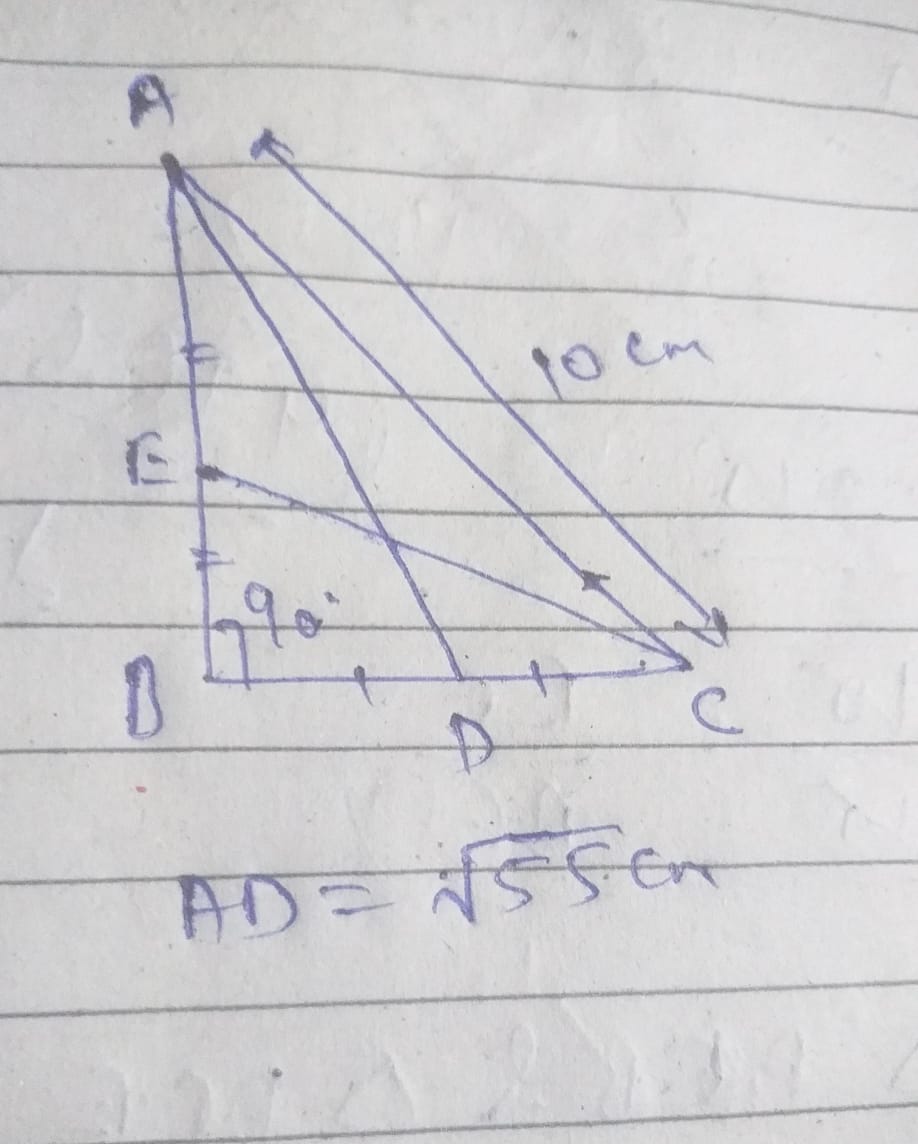 A
10 cm
E
90°
B
D
C
AD = √55 cm